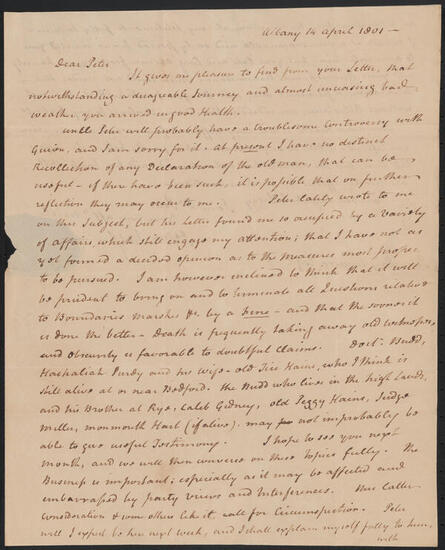 Albany 14 April 1801 —
Dear Peter
It gives me pleasure to find from your Letter, that
notwithstanding a disagreable Journey and almost unceasing bad
weather, you arrived in good Health.
Uncle Peter will probably have a troublesome controversy with
Guion, and I am sorry for it. at present I have no distinct
Recollection of any Declaration of the old man, that can be
useful — if there have been such, it is possible that on further
reflection they may occur to me. Peter lately wrote to me
on this Subject, but his Letter found me so occupied by a variety
of affairs, which still engage my attention; that I have not as
yet formed a decided opinion as to the measures most proper
to be pursued. I am however inclined to think that it will
be prudent to bring on and to terminate all Questions relative
to Boundaries Marshes &c. by a and that the sooner it
is done the better — Death is frequently taking away old witnesses,
and obscurity is favorable to doubtful claims. Doctr. Budd,
Hachaliah Purdy and his wife — old Hains, who I think is
still alive at or near Bedford. the Budd who lives in the high Lands,
and his Brother at Rye, Caleb Gidney, old Peggy Hains, Judge
Miller, Monmouth Hart (if alive) may not improbably be
able to give useful Testimony. I hope to see you next
month, and we will then converse on these Topics fully. The
Business is important; especially as it may be affected and
embarrassed by party views and Interferences. This Latter
consideration & some others like it, call for Circumspection. Peter
will I expect be here next week, and I shall explain myself fully to him,
with